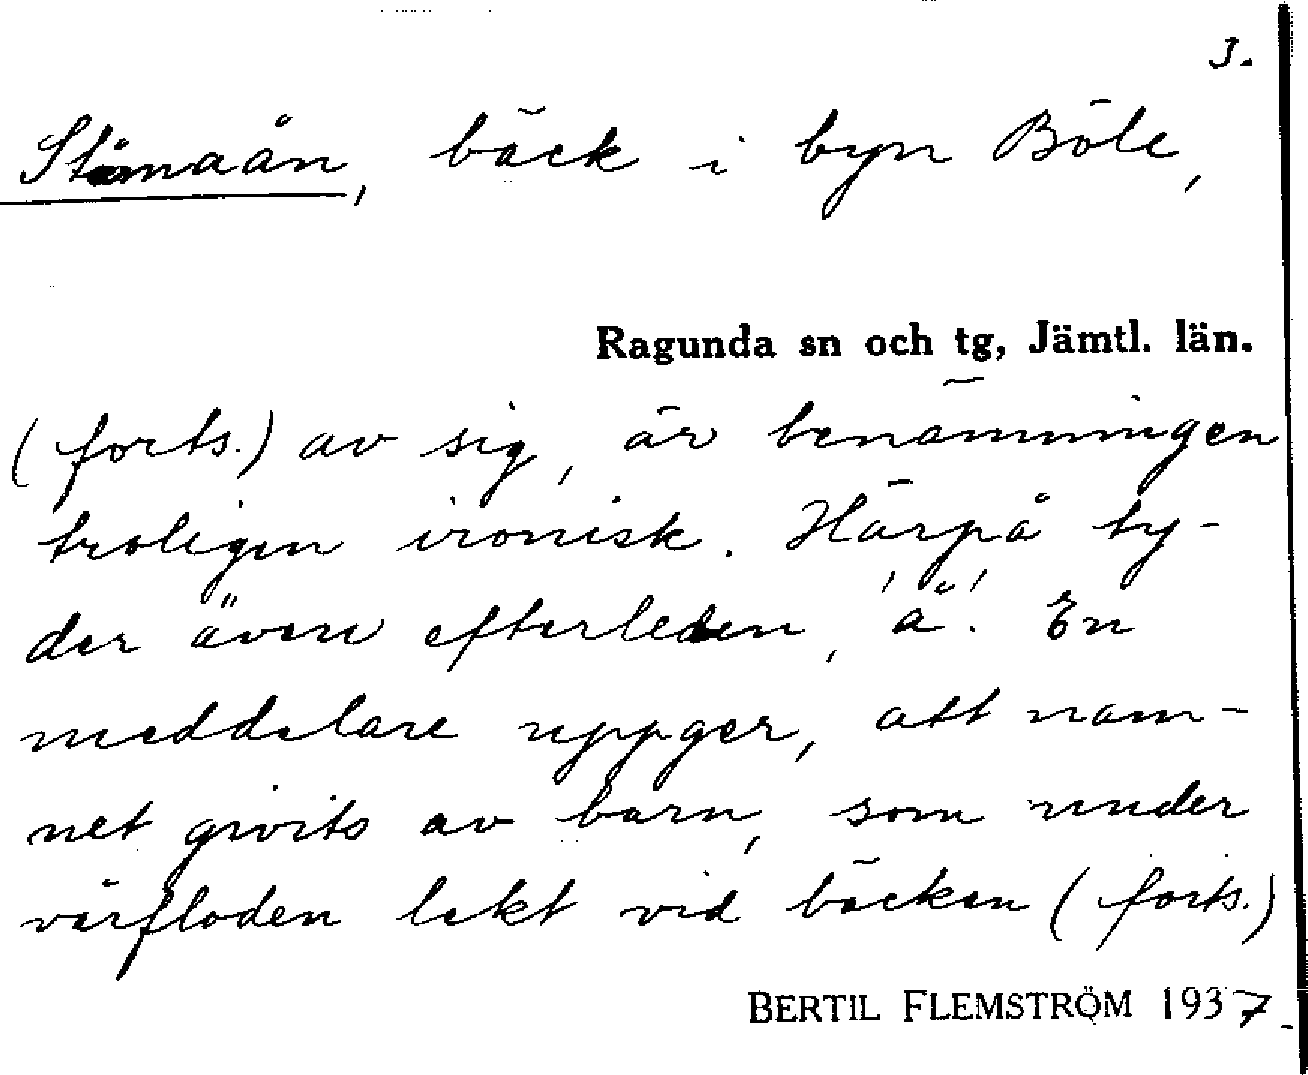 3.
Stamaån, bäck i byn Böle,
Ragunda sn och tg, Jämtl. län.
(forts.) av sig, är benämningen
troligen ironisk. Härpå ty-
der även efterleden, 'å'. En
meddelare uppger, att nam-
net givits av barn, som under
vårfloden lekt vid bäcken (forts.)
BERTIL FLEMSTRÖM 1937